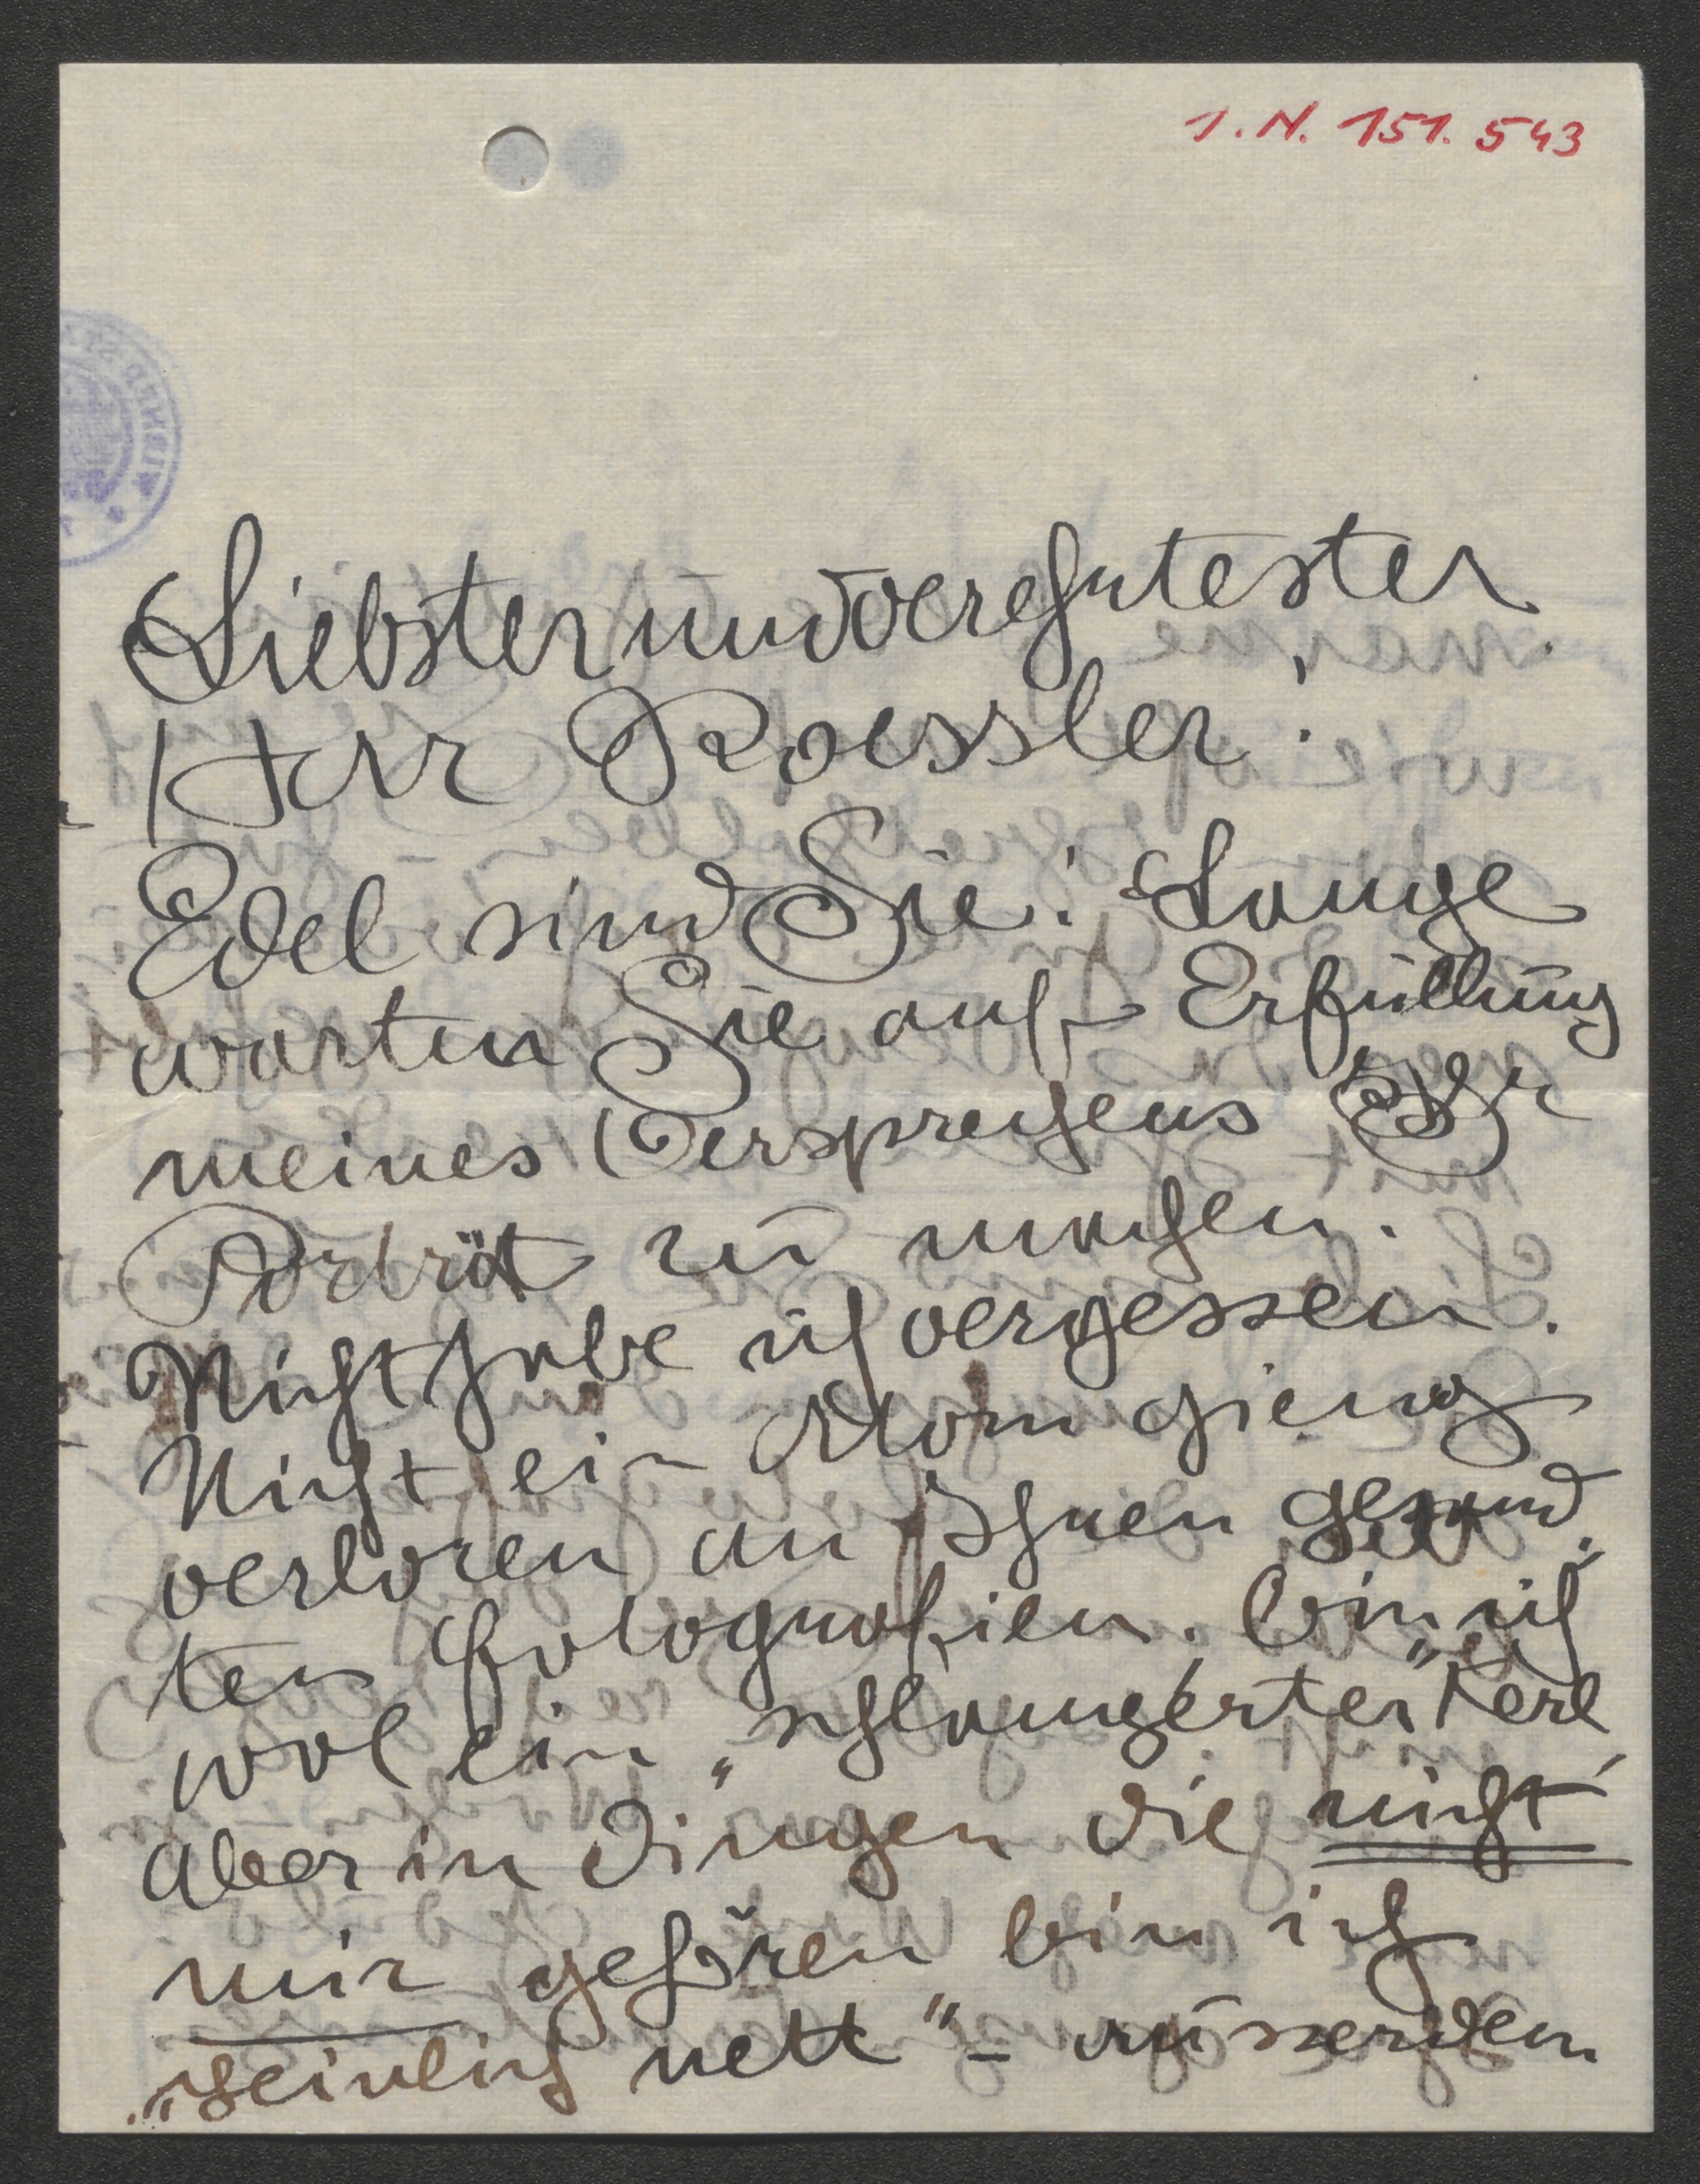 I.N. 151.543
Liebster und verehrtester
Herr Roessler!
Edel sind Sie! Lange
warten Sie auf Erfüllung
meines Versprechens Ihr
Porträt zu machen.
Nicht habe ich vergessen.
Nicht ein Atom gieng
verloren an Ihnen gesand
ten Fotografien. Bin ich
wol ein „schlampérter" Kerl
aber in Dingen die nicht
mir gehören bin ich
„peinlich nett" – ausserdem